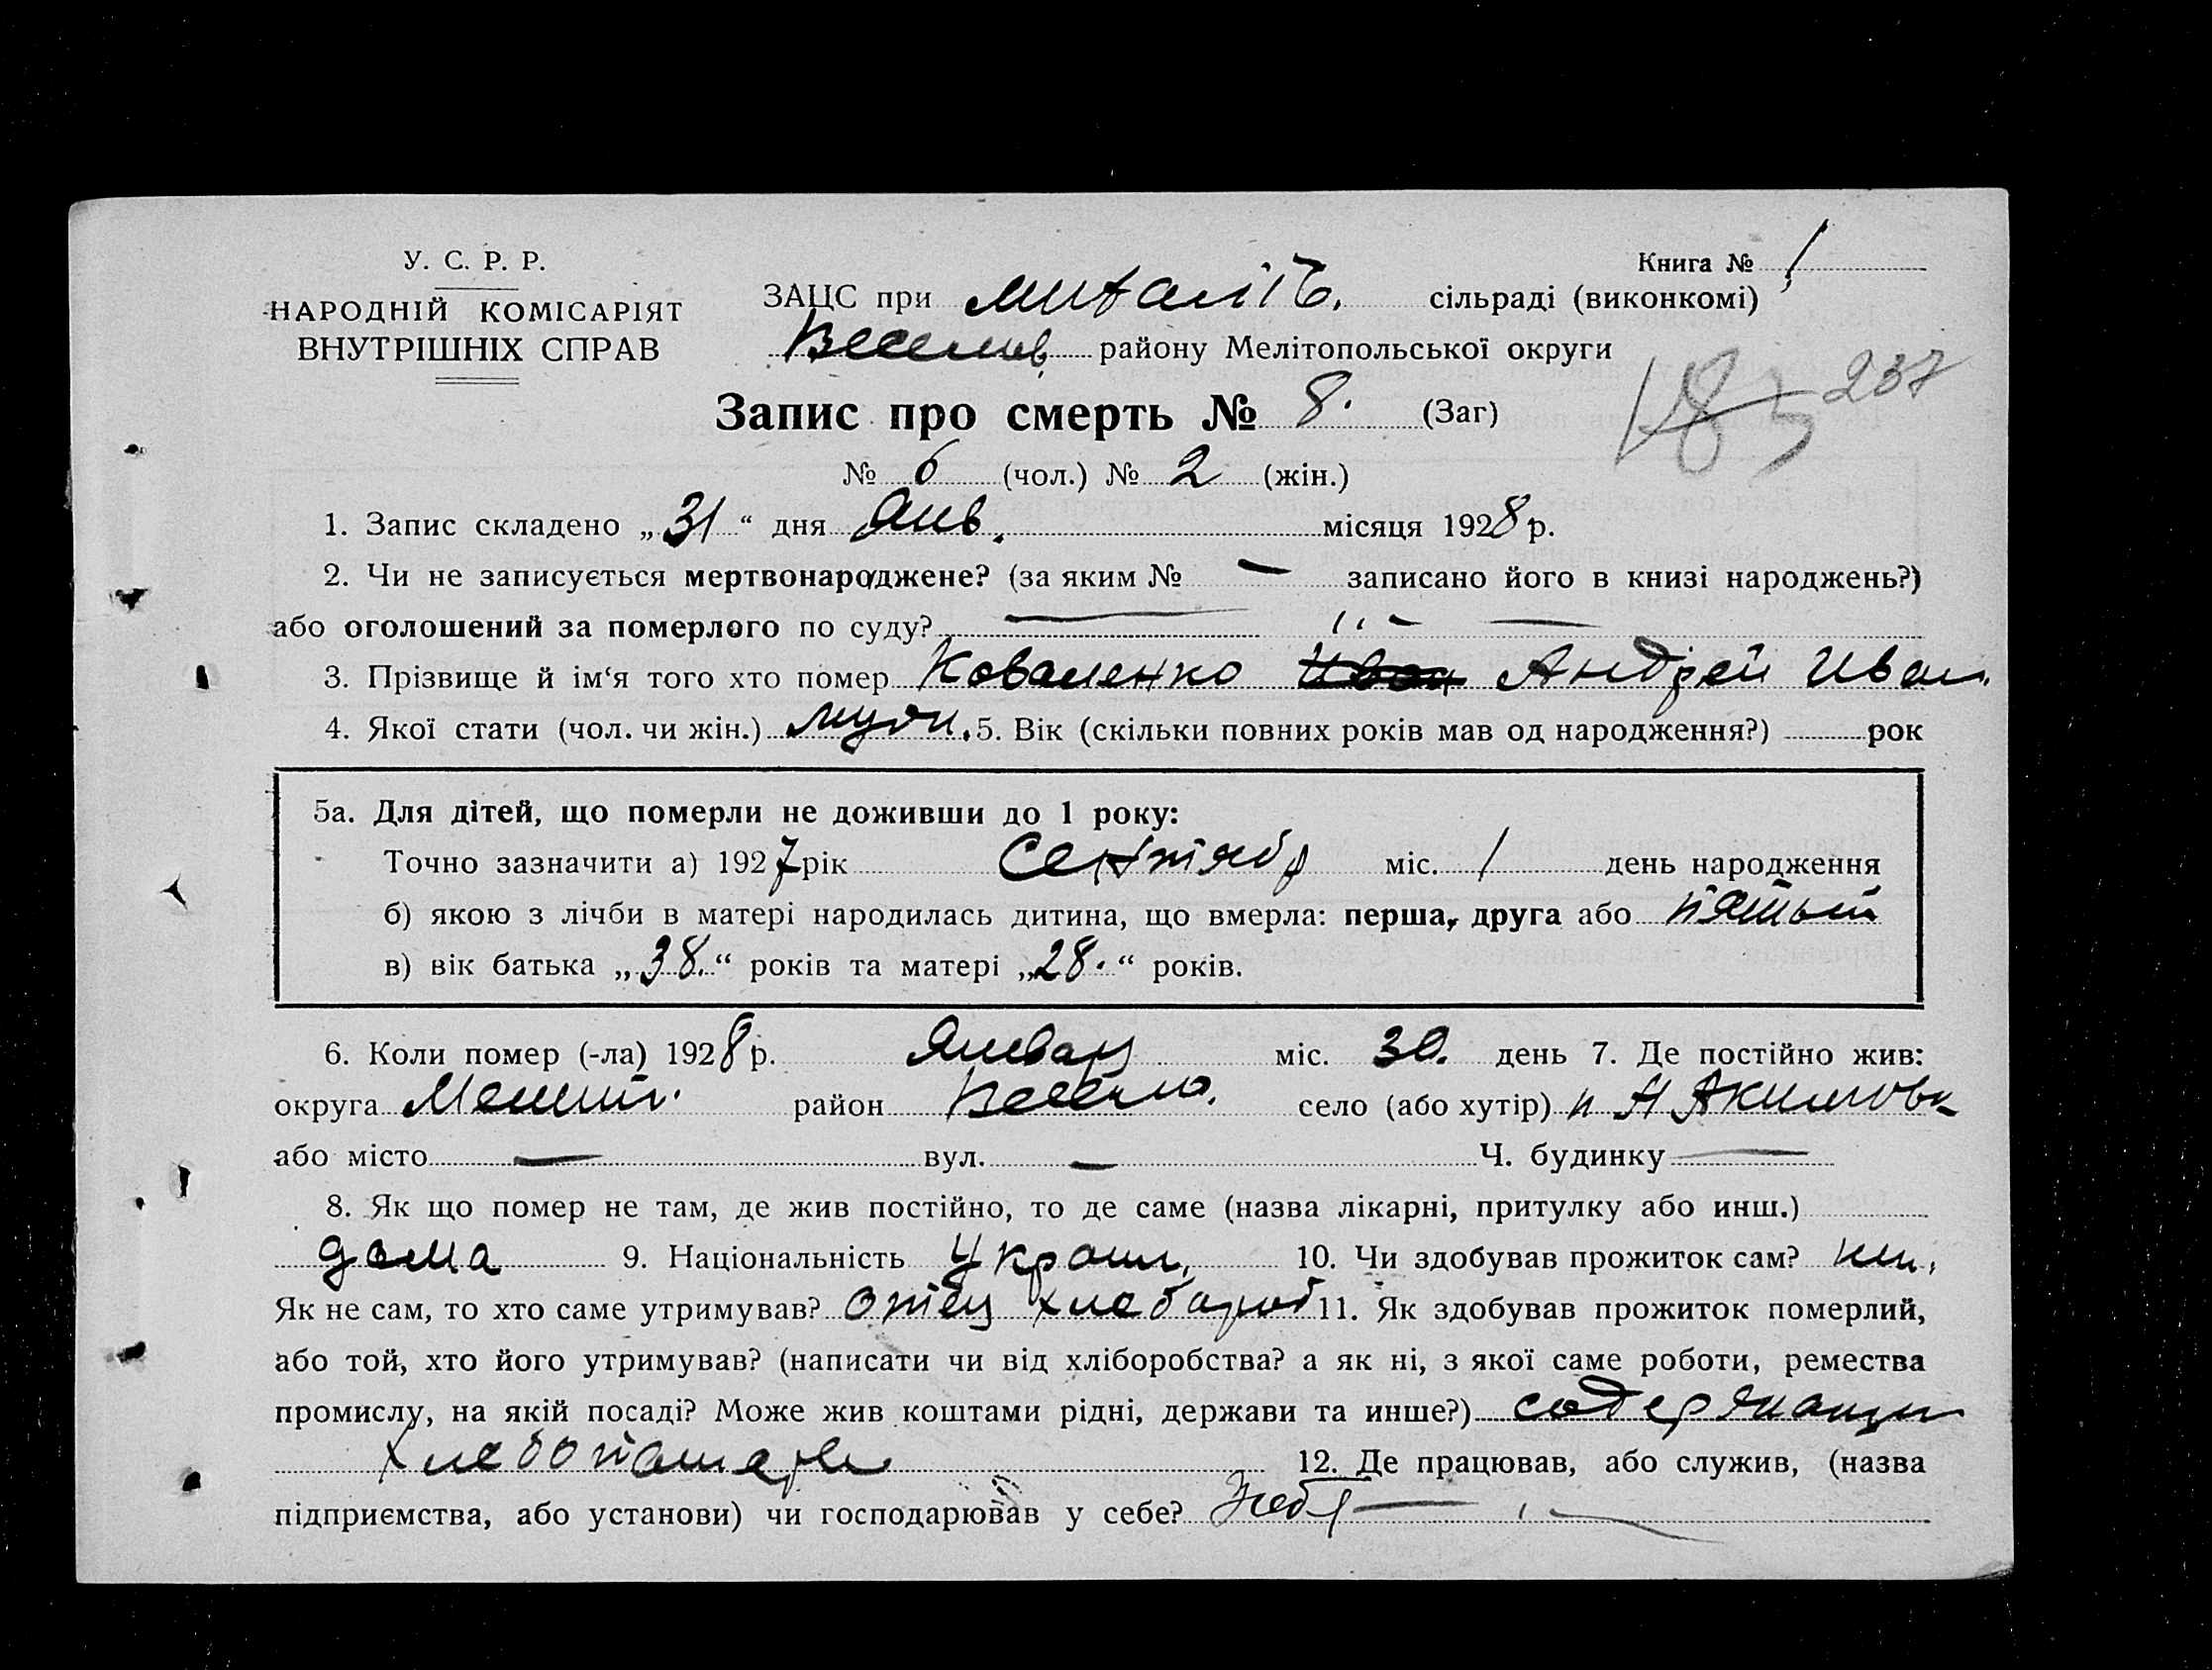 У. С. Р. Р.
НАРОДНІЙ КОМІСАРІЯТ
ВНУТРІШНІХ СПРАВ
Книга № 1
ЗАЦС при сільраді (виконкомі)
Веселов. району Мелітопольської округи
237
Запис про смерть № 8. (Заг)
№ 6 (чол.) № 2 (жін.)
1. Запис складено „31“ дня Янв. місяця 1928 р.
2. Чи не записується мертвонароджене? (за яким № — записано його в книзі народжень?)
або оголошений за померлого по суду? —
3. Прізвище й ім‘я того хто помер Коваленко Иван Андрей Иван.
4. Якої стати (чол. чи жін.) муж. 5. Вік (скільки повних років мав од народження?) рок
5а. Для дітей, що померли не доживши до 1 року:
Точно зазначити а) 1927 рік Сентябр міс. 1 день народження
б) якою з лічби в матері народилась дитина, що вмерла: перша, друга або пятый
в) вік батька „38.“ років та матері „28.“ років.
6. Коли помер (-ла) 1928 р. Январ міс. 30. день 7. Де постійно жив:
округа Мелит. район Весело. село (або хутір) п Н Акимовк
або місто — вул. — Ч. будинку —
8. Як що помер не там, де жив постійно, то де саме (назва лікарні, притулку або инш.)
дома 9. Національність Украин. 10. Чи здобував прожиток сам?
Як не сам, то хто саме утримував? отец хлебароб 11. Як здобував прожиток померлий,
або той, хто його утримував? (написати чи від хліборобства? а як ні, з якої саме роботи, ремества
промислу, на якій посаді? Може жив коштами рідні, держави та инше?)
12. Де працював, або служив, (назва
підприємства, або установи) чи господарював у себе?